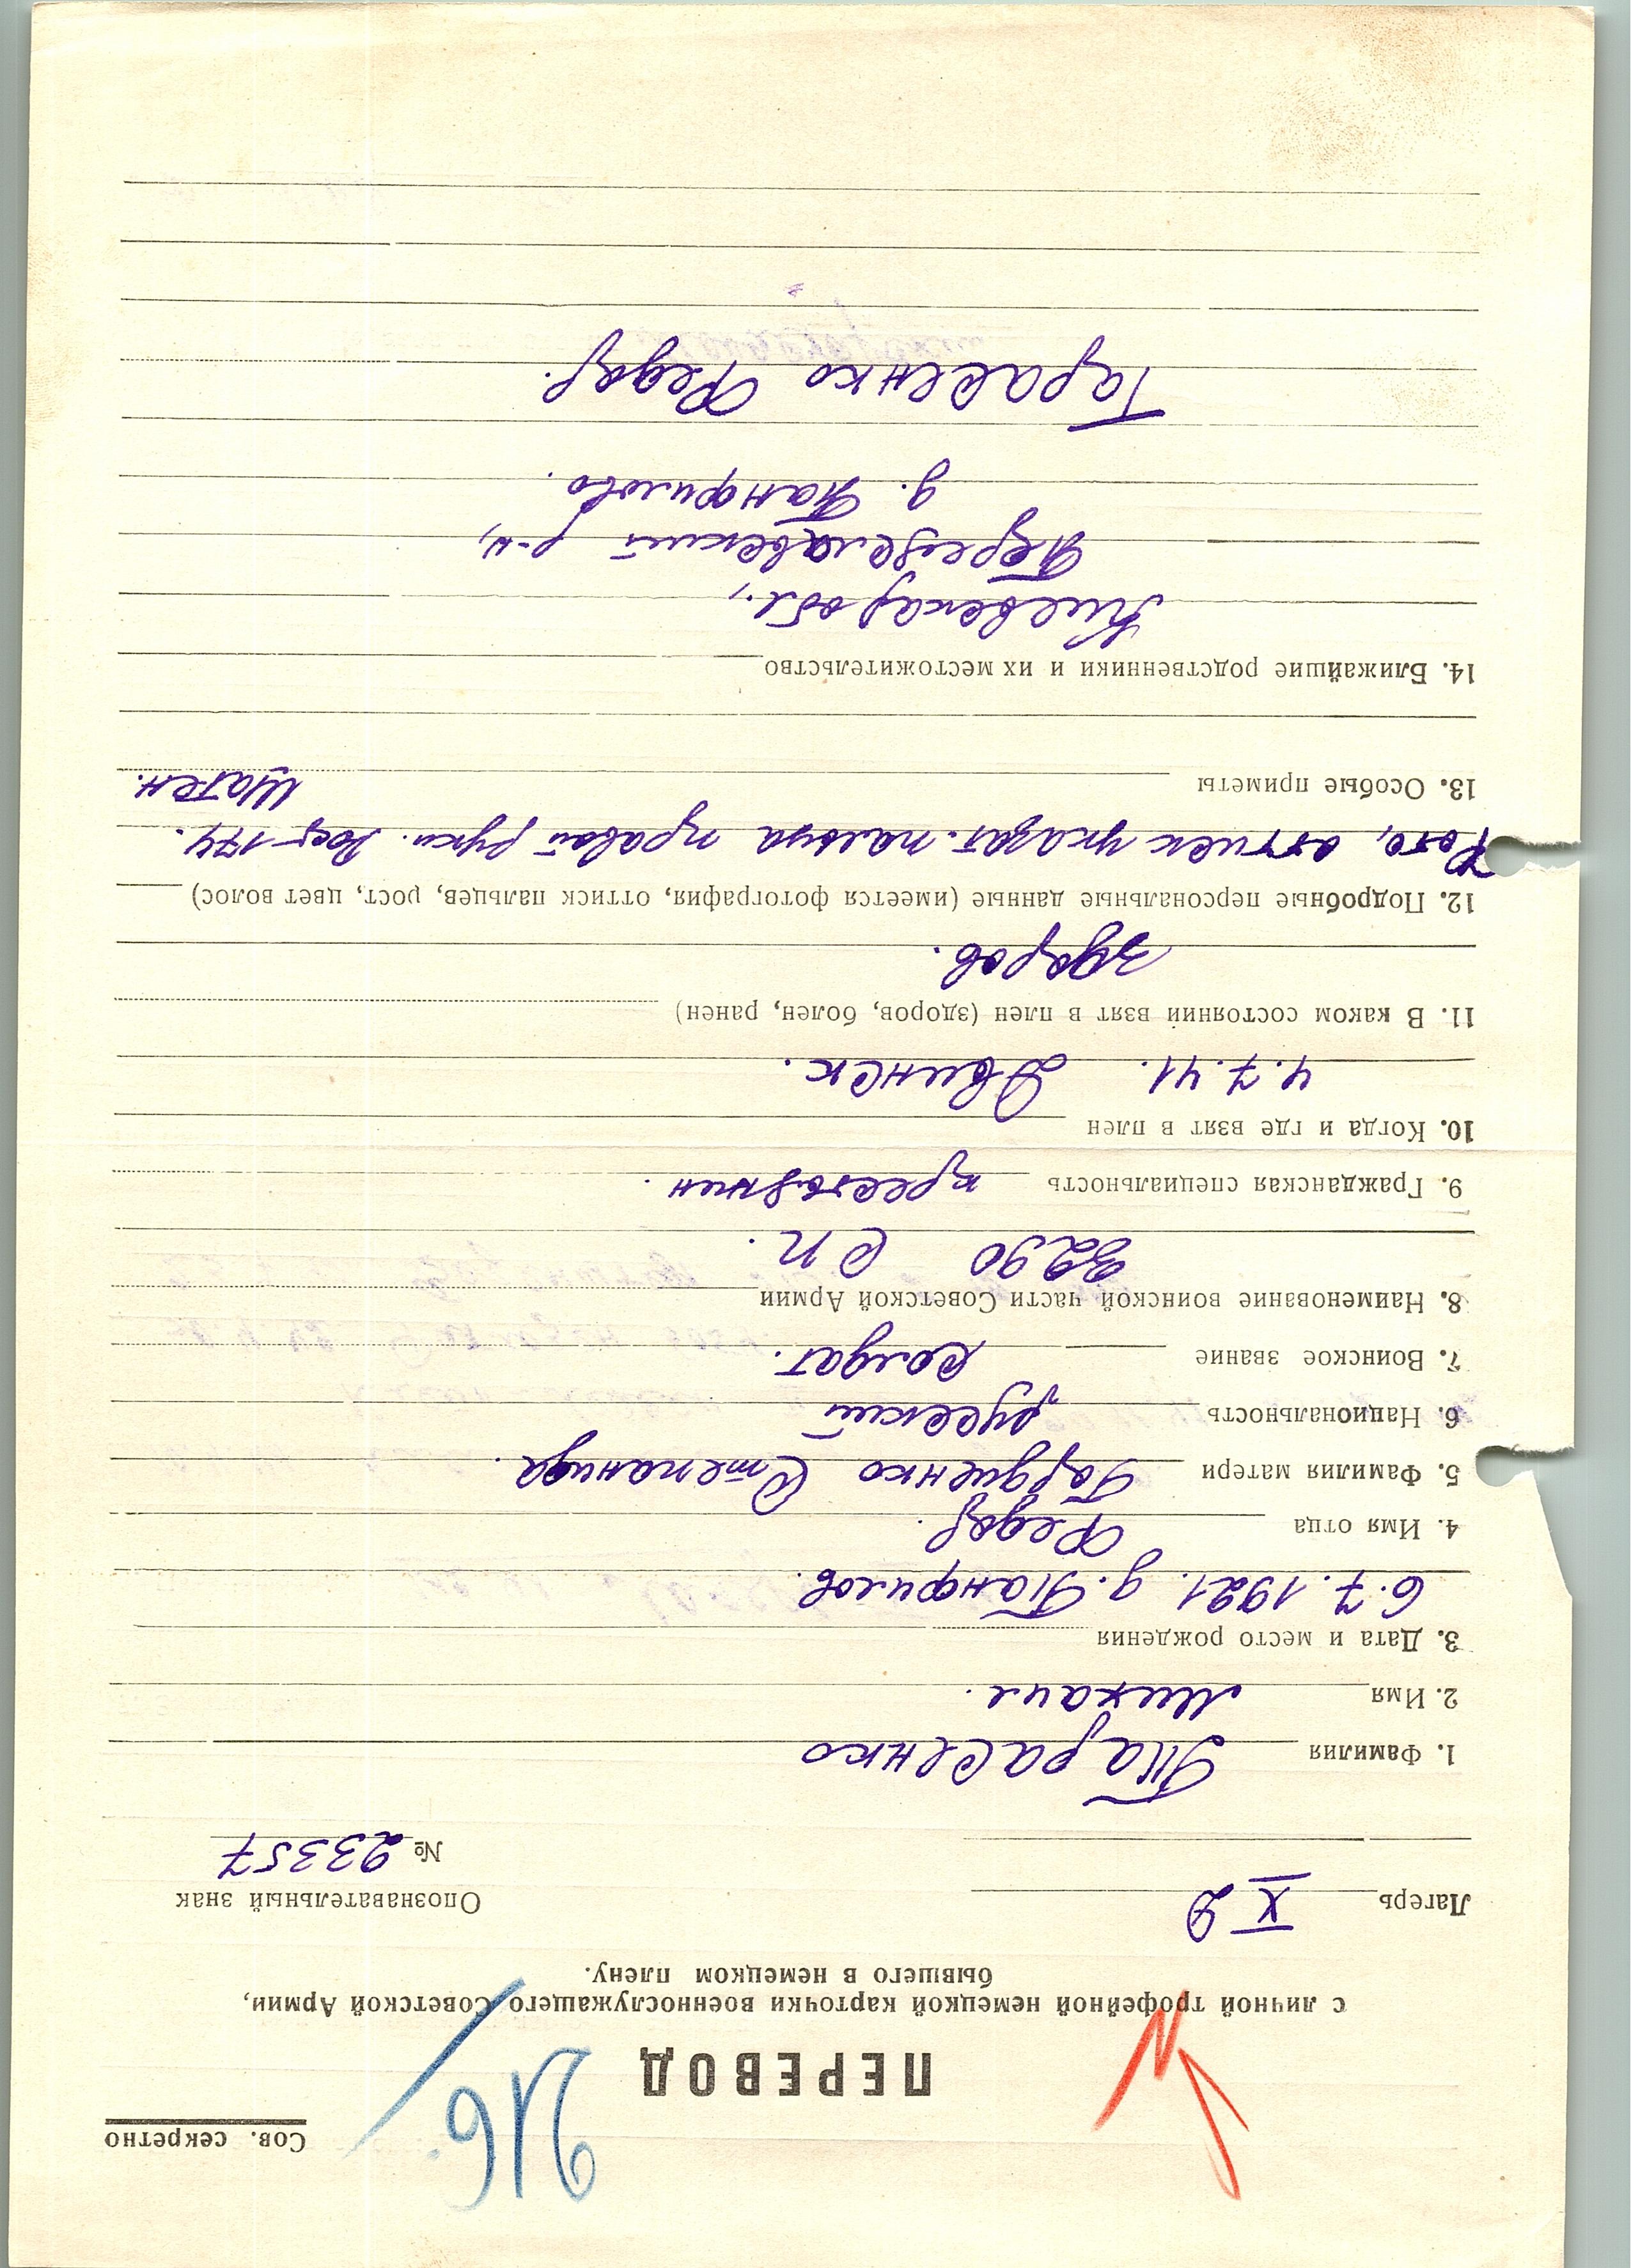 Сов. секретно
216.
ПЕРЕВОД
с личной трофейной немецкой карточки военнослужащего Советской Армии,
бывшего в немецком плену.
Лагерь X Д
Опознавательный знак
№ 23357
1. Фамилия Тарасенко
2. Имя Михаил.
3. Дата и место рождения
6.7.1921. д. Панфилов.
4. Имя отца Федор.
5. Фамилия матери Гордиенко Степанида.
6. Национальность русский
7. Воинское звание солдат.
8. Наименование воинской части Советской Армии
3290 СП.
9. Гражданская специальность крестьянин.
10. Когда и где взят в плен
4.7.41. Двинск.
11. В каком состоянии взят в плен (здоров, болен, ранен)
здоров.
12. Подробные персональные данные (имеется фотография, оттиск пальцев, рост, цвет волос)
Фото, оттиск указат. пальца правой руки. Рост 174.
13. Особые приметы Шатен.
14. Ближайшие родственники и их местожительство
Киевская обл.,
Переяславский р-н,
д. Панфилово.
Тарасенко Федор.